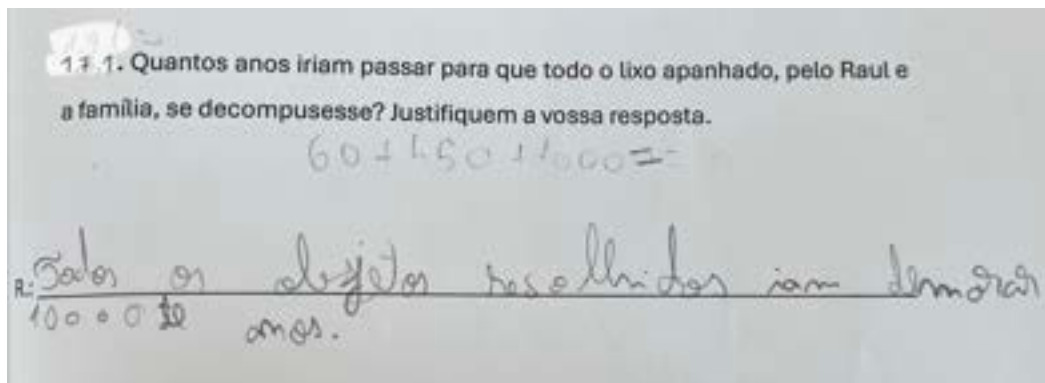 17.1. Quantos anos iriam passar para que todo o lixo apanhado, pelo Raul e
a família, se decompusesse? Justifiquem a vossa resposta.
60+450+1000=
R: Todos os objetos resolhidos iam demorar
10000 de anos.